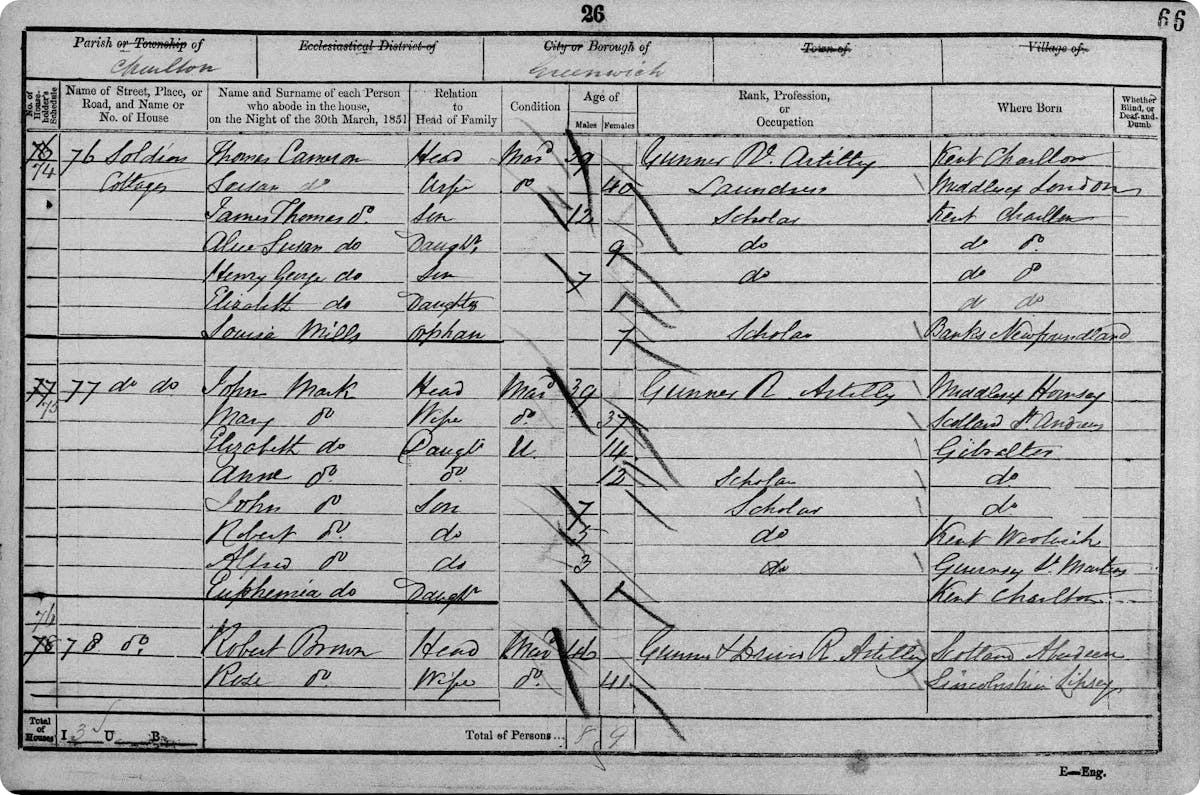 26
66
Parish or Township of Ecclesiastical District of City or Borough of Town of Village of
Charlton Greenwich
No. of House-holder's Schedule Name of Street, Place, or Road, and Name or No. of House Name and Surname of each Person who abode in the house, on the Night of the 30th March, 1851 Relation to Head of Family Condition Age of Males Females Rank, Profession, or Occupation Where Born Whether Blind, or Deaf-and-Dumb
76 74 76 Soldiers Thomas Cameron Head Mard 39 Gunner Rl. Artilly Kent Charlton
Cottages Susan do Wife do 40 Laundress Middlesex London
James Thomas do Son 12 Scholar Kent Charlton
Alice Susan do Daughtr 9 do do do
Henry George do Son 7 do do do
Elizabeth do Daughter do do
Louisa Mills Orphan 7 Scholar Banks Newfoundland
77 75 77 do do John Mark Head Mard 39 Gunner R. Artilly Middlesex Hornsey
Mary do Wife do 37 Scotland St Andrews
Elizabeth do Daughtr U 14 Gibralter
Anne do do 12 Scholar do
John do Son 7 Scholar do
Robert do do 5 do Kent Woolwich
Alfred do do 3 do Guernsey St Martins
Euphemia do Daughtr 1 Kent Charlton
76
78 78 do Robert Brown Head Mard 46 Gunner & Driver R. Artilley Scotland Aberdeen
Rose do Wife do 41 Lincolnshire
Total of Houses I 3 U B Total of Persons... 8 9
E—Eng.